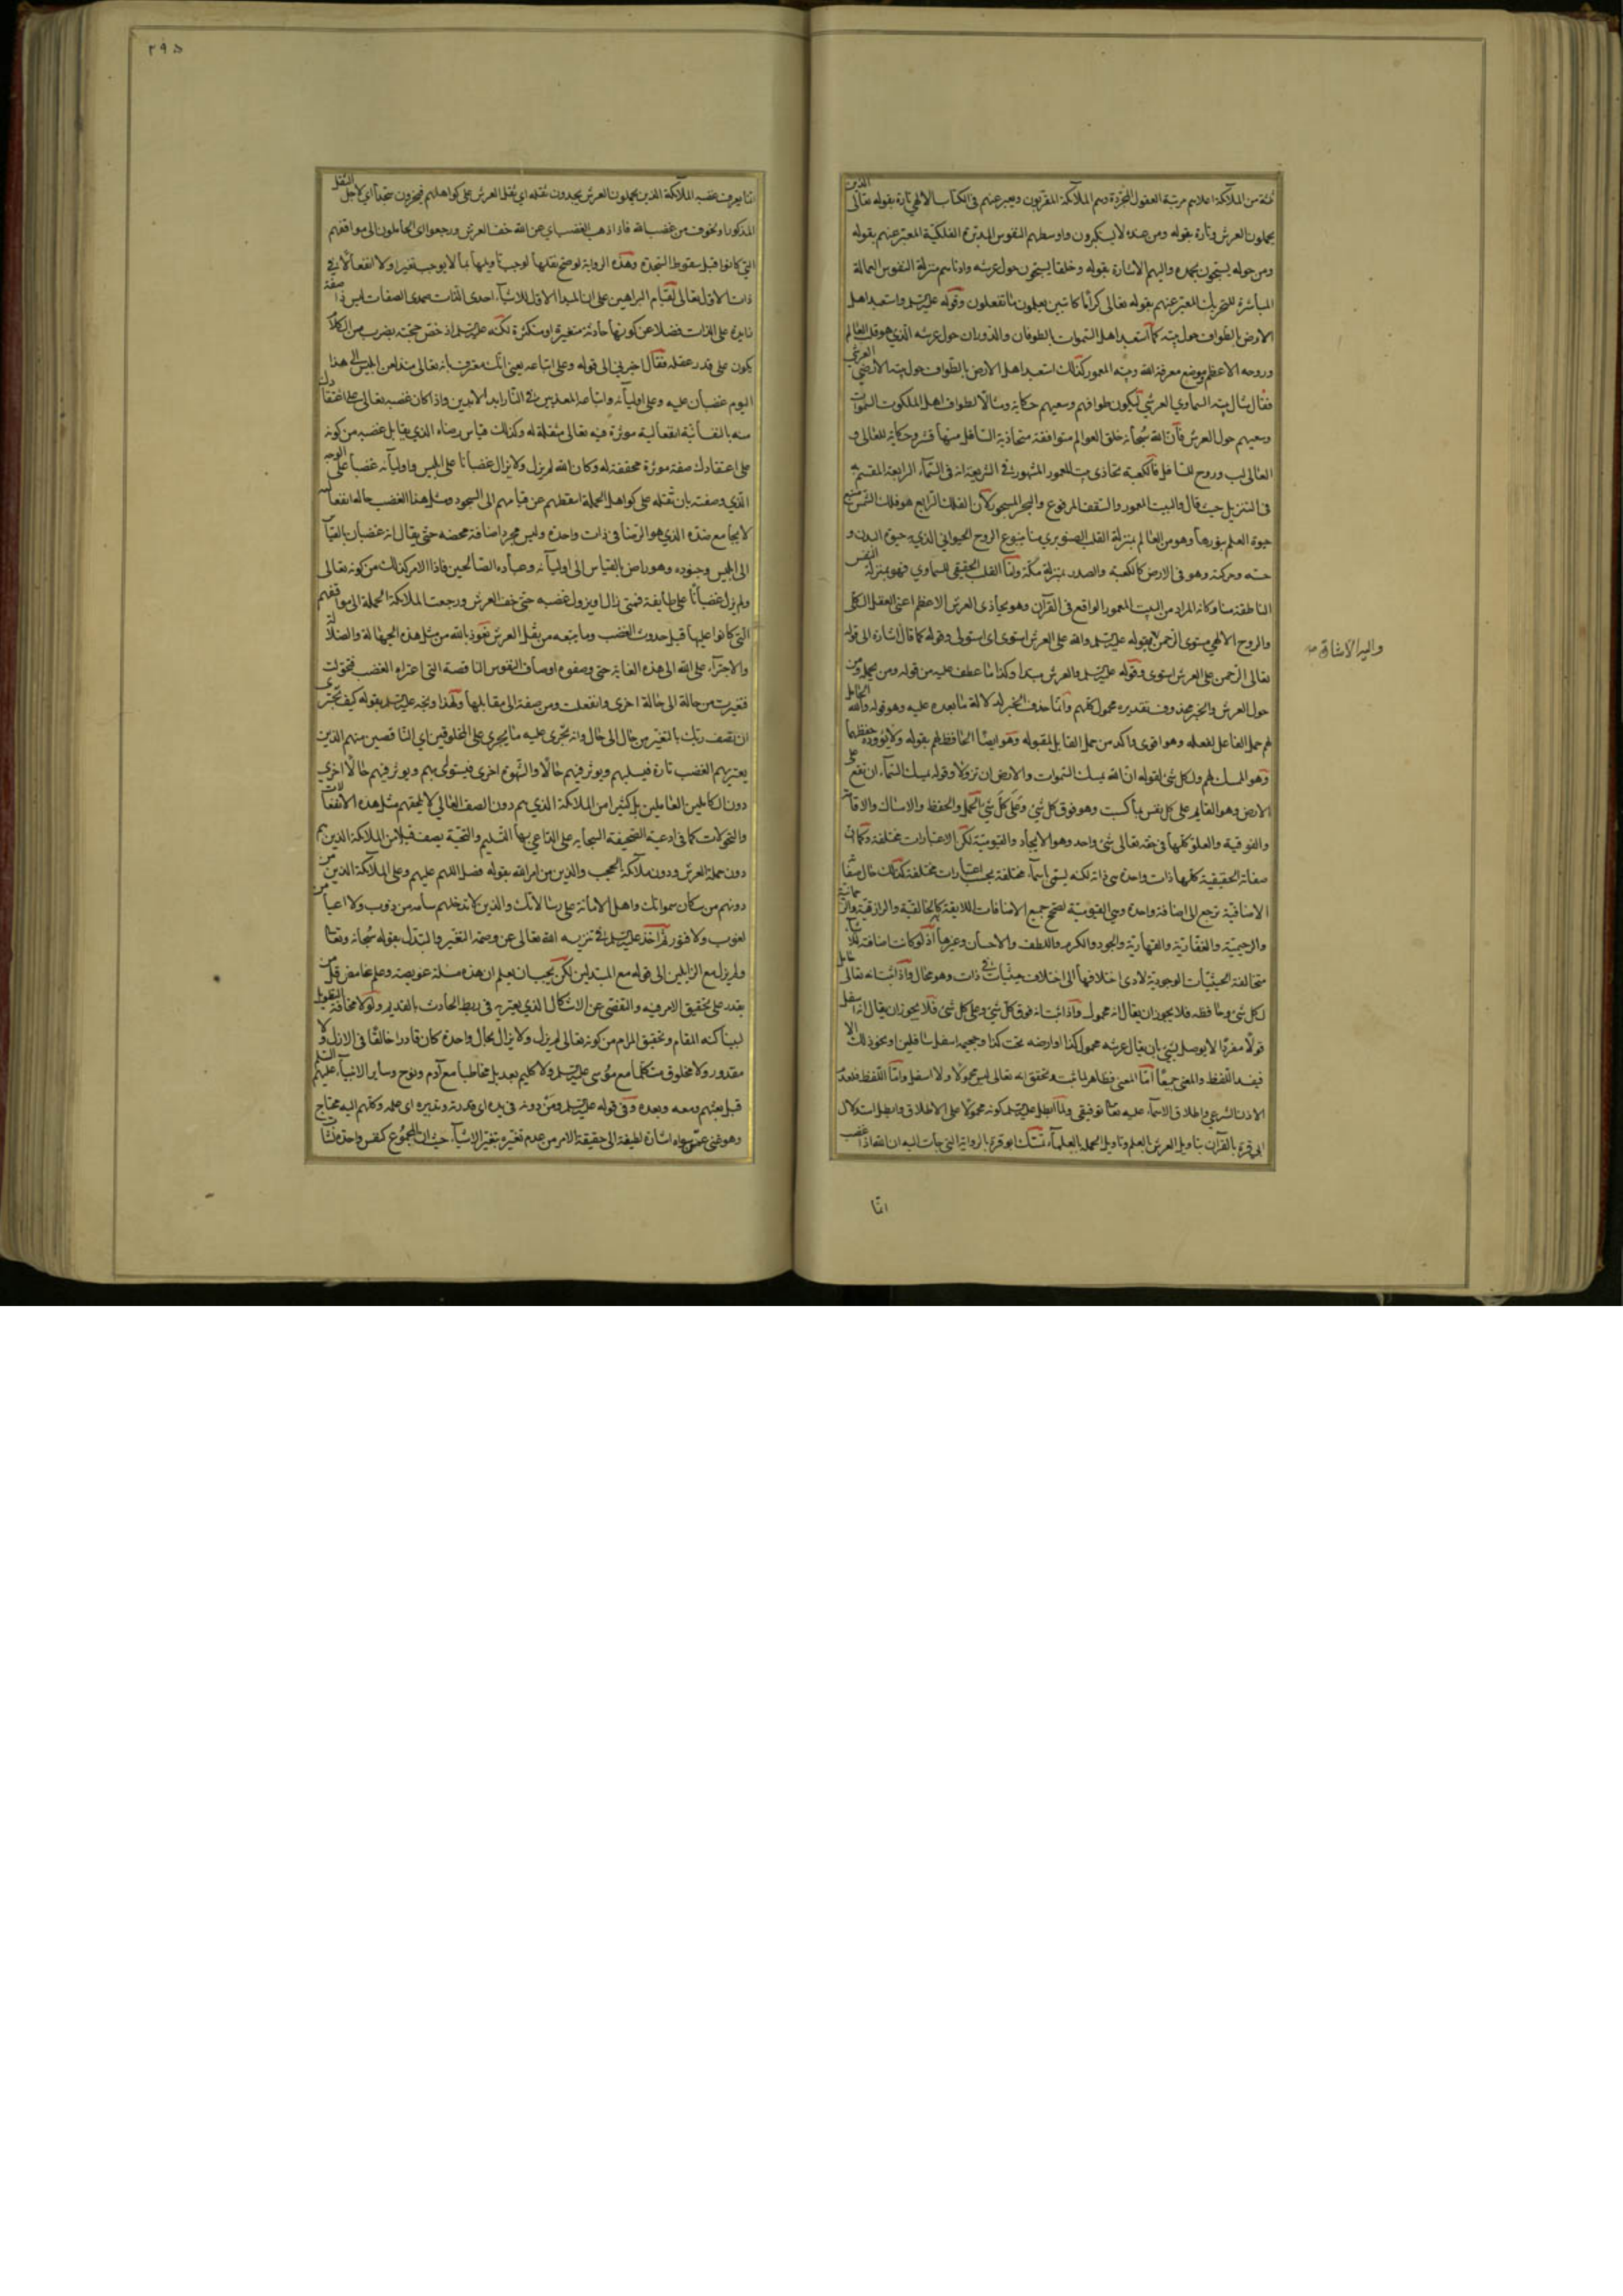 ثلثة من الملائكة اعلاهم مرتبة العقول المجردة وهم الملائكة المقربون ويعبر عنهم فى الكتاب الالهي تارة بقوله تعالى الذين
يحملون العرش وتارة بقوله ومن عنده لا يستكبرون واوسطهم النفوس المدبرة الفلكية المعبر عنهم بقوله
ومن حوله يسبحون بحمده واليهم الاشارة بقوله وخلقا يسبحون حول عرشه وادناهم منزلة النفوس العمالة
المباشرة للتحريك المعبر عنهم بقوله تعالى كراما كاتبين يعلمون ما تفعلون وقوله عليه السلم واستعبد اهل
الارض بالطواف حول بيته كما استعبد اهل السموات بالطوفان والدوران حول عرشه الذي هو قلب العالم
وروحه الاعظم وموضع معرفة الله وبيته المعمور كذلك استعبد اهل الارض بالطواف حول بيته الارضي
فقال مثال بيته السماوي العرشي ليكون طوافهم وسعيهم حكاية ومثالا لطواف اهل الملكوت السموات
وسعيهم حول العرش فان الله سبحانه خلق العوالم متوافقة متحاذية السافل منها قشر وحكاية للعالى و
العالى لب وروح للسافل فالكعبة تحاذى بيت المعمور المشهور فى الشريعة انه فى السماء الرابعة المقسم به
فى التنزيل حيث قال والبيت المعمور والسقف المرفوع والبحر المسجور لان الفلك الرابع هو فلك الشمس منبع
حيوة العالم بنورها وهو من العالم بمنزلة القلب الصنوبري منا ينبوع الروح الحيوانى الذي به حيوة البدن و
حسه وحركته وهو فى الارض كالكعبة والصدر بمنزلة مكة واما القلب الحقيقى السماوي فهو بمنزلة النفس
الناطقة منا وكانه المراد من البيت المعمور الواقع فى القرآن وهو يحاذى العرش الاعظم اعنى العقل الكلى
والروح الالهي مستوى الرحمن بقوله عليه السلم والله على العرش استوى اى استولى وقوله كما قال اشارة الى قوله
تعالى الرحمن على العرش استوى وقوله عليه السلم والعرش مبتدا وكذا ما عطف عليه من قوله ومن يحمله ومن
حول العرش والخبر محذوف تقديره محمول كلهم وانما حذف الخبر لدلالة ما بعده عليه وهو قوله والله الحامل
لهم حمل الفاعل لفعله وهو اقوى واكد من حمل القابل لمقبوله وهو ايضا الحافظ لهم بقوله ولا يؤوده حفظهما
وهو الممسك لهم ولكل شئ لقوله ان الله يمسك السموات والارض ان تزولا وقوله يمسك السماء ان تقع على
الارض وهو القايم على كل نفس بما كسبت وهو فوق كل شئ وعلى كل شئ فالحمل والحفظ والامساك والاقامة
والفوقية والعلو كلها فى حقه تعالى شئ واحد وهو الايجاد والقيومية لكن الاعتبارات مختلفة وكما ان
صفاته الحقيقية كلها ذات واحدة هى ذاته لكنه يسمى باسماء مختلفة بحسب اعتبارات مختلفة كذلك حال صفاته
الاضافية ترجع الى اضافة واحدة وهي القيومية تصحح جميع الاضافات اللايقة كالخالقية والرازقية والرحمانية
والرحيمية والغفارية والقهارية والجود والكرم واللطف والاحسان وغيرها اذ لو كانت اضافته للاشياء
متخالفة الحيثيات الوجودية لادى اختلافها الى اختلاف حيثيات فى ذات وهو محال واذا ثبت انه تعالى حامل
لكل شئ وحافظه فلا يجوز ان يقال انه محمول واذا ثبت انه فوق كل شئ وعلى كل شئ فلا يجوز ان يقال انه اسفل
قولا مفردا لا يوصل بشئ بان يقال عرشه محمول كذا او ارضه تحت كذا وجمعه اسفل سافلين او نحو ذلك الا
فيفسد اللفظ والمعنى جميعا اما المعنى فظاهر لما ثبت وتحقق انه تعالى ليس محمولا ولا اسفل واما اللفظ فلعدم
الاذن الشرعي واطلاق الاسماء عليه تعالى توقيفى ولما ابطل عليه السلم كونه محمولا على الاطلاق وابطل استدلال
ابى قرة بالقرآن بتاويل العرش بالعلم وتاويل الحملة بالعلماء تمسك ابو قرة بالرواية التى جات اليه ان الله اذا غضب
انما
واليه الاشارة
٢٩٥
انما يعرف غضبه الملائكة الذين يحملون العرش يجدون ثقله اي ثقل العرش على كواهلهم فيخرون سجدا اي لاجل الثقل
المذكور او لخوف من غضب الله فاذا ذهب الغضب اي عن الله خف العرش ورجعوا اى الحاملون الى مواقفهم
التى كانوا قبل سقوط السجدة وهذه الرواية لو صح نقلها لوجب تاويلها بما لا يوجب تغيرا ولا انفعالا فى
ذات الاول تعالى لقيام البراهين على ان المبدا الاول للاشياء احدى الذات صمدى الصفات ليس ذا صفة
زايدة على الذات فضلا عن كونها حادثة متغيرة او متكثرة لكنه عليه السلم اذ خص حجته بضرب من الكلام
يكون على قدر عقله فقال اخبرنى الى قوله وعلى اتباعه يعنى انك معترف بانه تعالى منذ لعن ابليس الى هذا
اليوم غضبان عليه وعلى اوليائه واتباعه المعذبين فى النار ابد الابدين واذا كان غضبه تعالى على اعتقادك
صفة نفسانية انفعالية موثرة فيه تعالى مثقلة له وكذلك قياس رضاه الذي يقابل غضبه من كونه
على اعتقادك صفة موثرة مخففة له وكان الله لم يزل ولا يزال غضبانا على ابليس واوليائه غضبا على الوجه
الذي وصفته بان ثقله على كواهل الحملة اسقطهم عن قيامهم الى السجود ومثل هذا الغضب حالة انفعالية
لا يجامع ضده الذي هو الرضا فى ذات واحدة وليس مجرد اضافة محضة حتى يقال انه غضبان بالقياس
الى ابليس وجنوده وهو راض بالقياس الى اوليائه وعباده الصالحين فاذا الامر كذلك من كونه تعالى
ولم يزل غضبانا على طايفة فمتى زال او يزول غضبه حتى خف العرش ورجعت الملائكة الحملة الى مواقفهم
التى كانوا عليها قبل حدوث الغضب وما يتبعه من ثقل العرش نعوذ بالله من مثل هذه الجهالة والضلالة
والاجتراء على الله الى هذه الغاية حتى وصفوه اوصاف النفوس الناقصة التى اعتراه الغضب فتحولت
فتغيرت من حالة الى حالة اخرى وانفعلت ومن صفة الى مقابلها ولهذا وبخه عليه السلم بقوله كيف تجترى
ان تصف ربك بالتغير من حال الى حال وانه يجرى عليه ما يجرى على المخلوقين اي الناقصين منهم الذين
يعتريهم الغضب تارة فيسلبهم ويوثر فيهم حالا والشهوة اخرى فيستولى بهم ويوثر فيهم حالا اخرى
دون الكاملين العاملين بل كثيرا من الملائكة الذي هم دون الصف العالى لا يلحقهم مثل هذه الانفعالات
والتحولات كما فى ادعية الصحيفة السجادية على الداعي بها التسليم والتحية يصف قبيلا من الملائكة الذين هم
دون حملة العرش ودون ملائكة الحجب والذين من امر الله بقوله فصل اللهم عليهم وعلى الملائكة الذين من
دونهم من سكان سمواتك واهل الامانة على رسالاتك والذين لا تدخلهم سامة من دؤوب ولا اعياء من
لغوب ولا فتور ثم اخذ عليه السلم فى تنزيه الله تعالى عن وصمة التغير والتبدل بقوله سبحانه وتعالى
ولم يزل مع الزايلين الى قوله مع المتبدلين لكن يجب ان يعلم ان هذه مسئلة عويصة وعلم غامض قل من
يقدر على تحقيق الامر فيه والتفصى عن الاشكال الذي يعتريه فى ربط الحادث بالقديم ولولا مخافة التطويل
لبينا كنه المقام وتحقيق المرام من كونه تعالى لم يزل ولا يزال بحال واحدة كان قادرا خالقا فى الازل ولا
مقدور ولا مخلوق متكلما مع موسى عليه السلم ولا كليم بعد بل مخاطبا مع آدم ونوح وساير الانبياء عليهم السلم
قبل بعثهم ومعه وبعده وفى قوله عليه السلم ومن دونه فى يده اى قدرته وتدبيره اى علمه وكلهم اليه محتاج
وهو غنى عمن سواه اشارة لطيفة الى حقيقة الامر من عدم تغيره بتغير الاشياء حيث ان المجموع كنفس واحدة